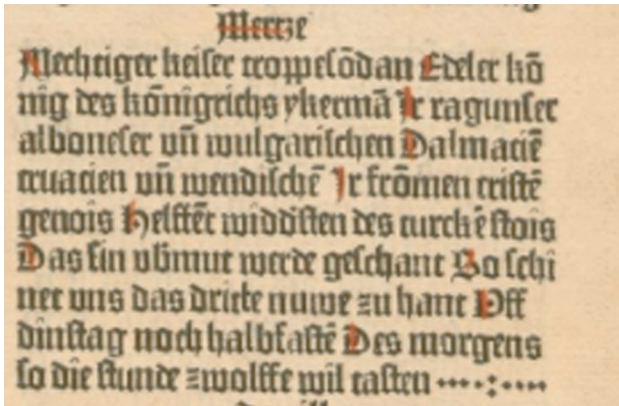 Mertze
Mechtiger keiser troppesōdan Edeler kō
nig des kōnigrichs ykermā Ir ragunser
alboneser uñ wulgarischen Dalmaciē
cruacien uñ wendischē Ir frōmen cristē
genois Helffēt widdistēn des turckē stois
Das sin ubimut werde geschant So schi
net uns das dritte nuwe zu hant Uff
dinstag noch halbfastē Des morgens
so die stunde zwolffe wil tasten ····:····